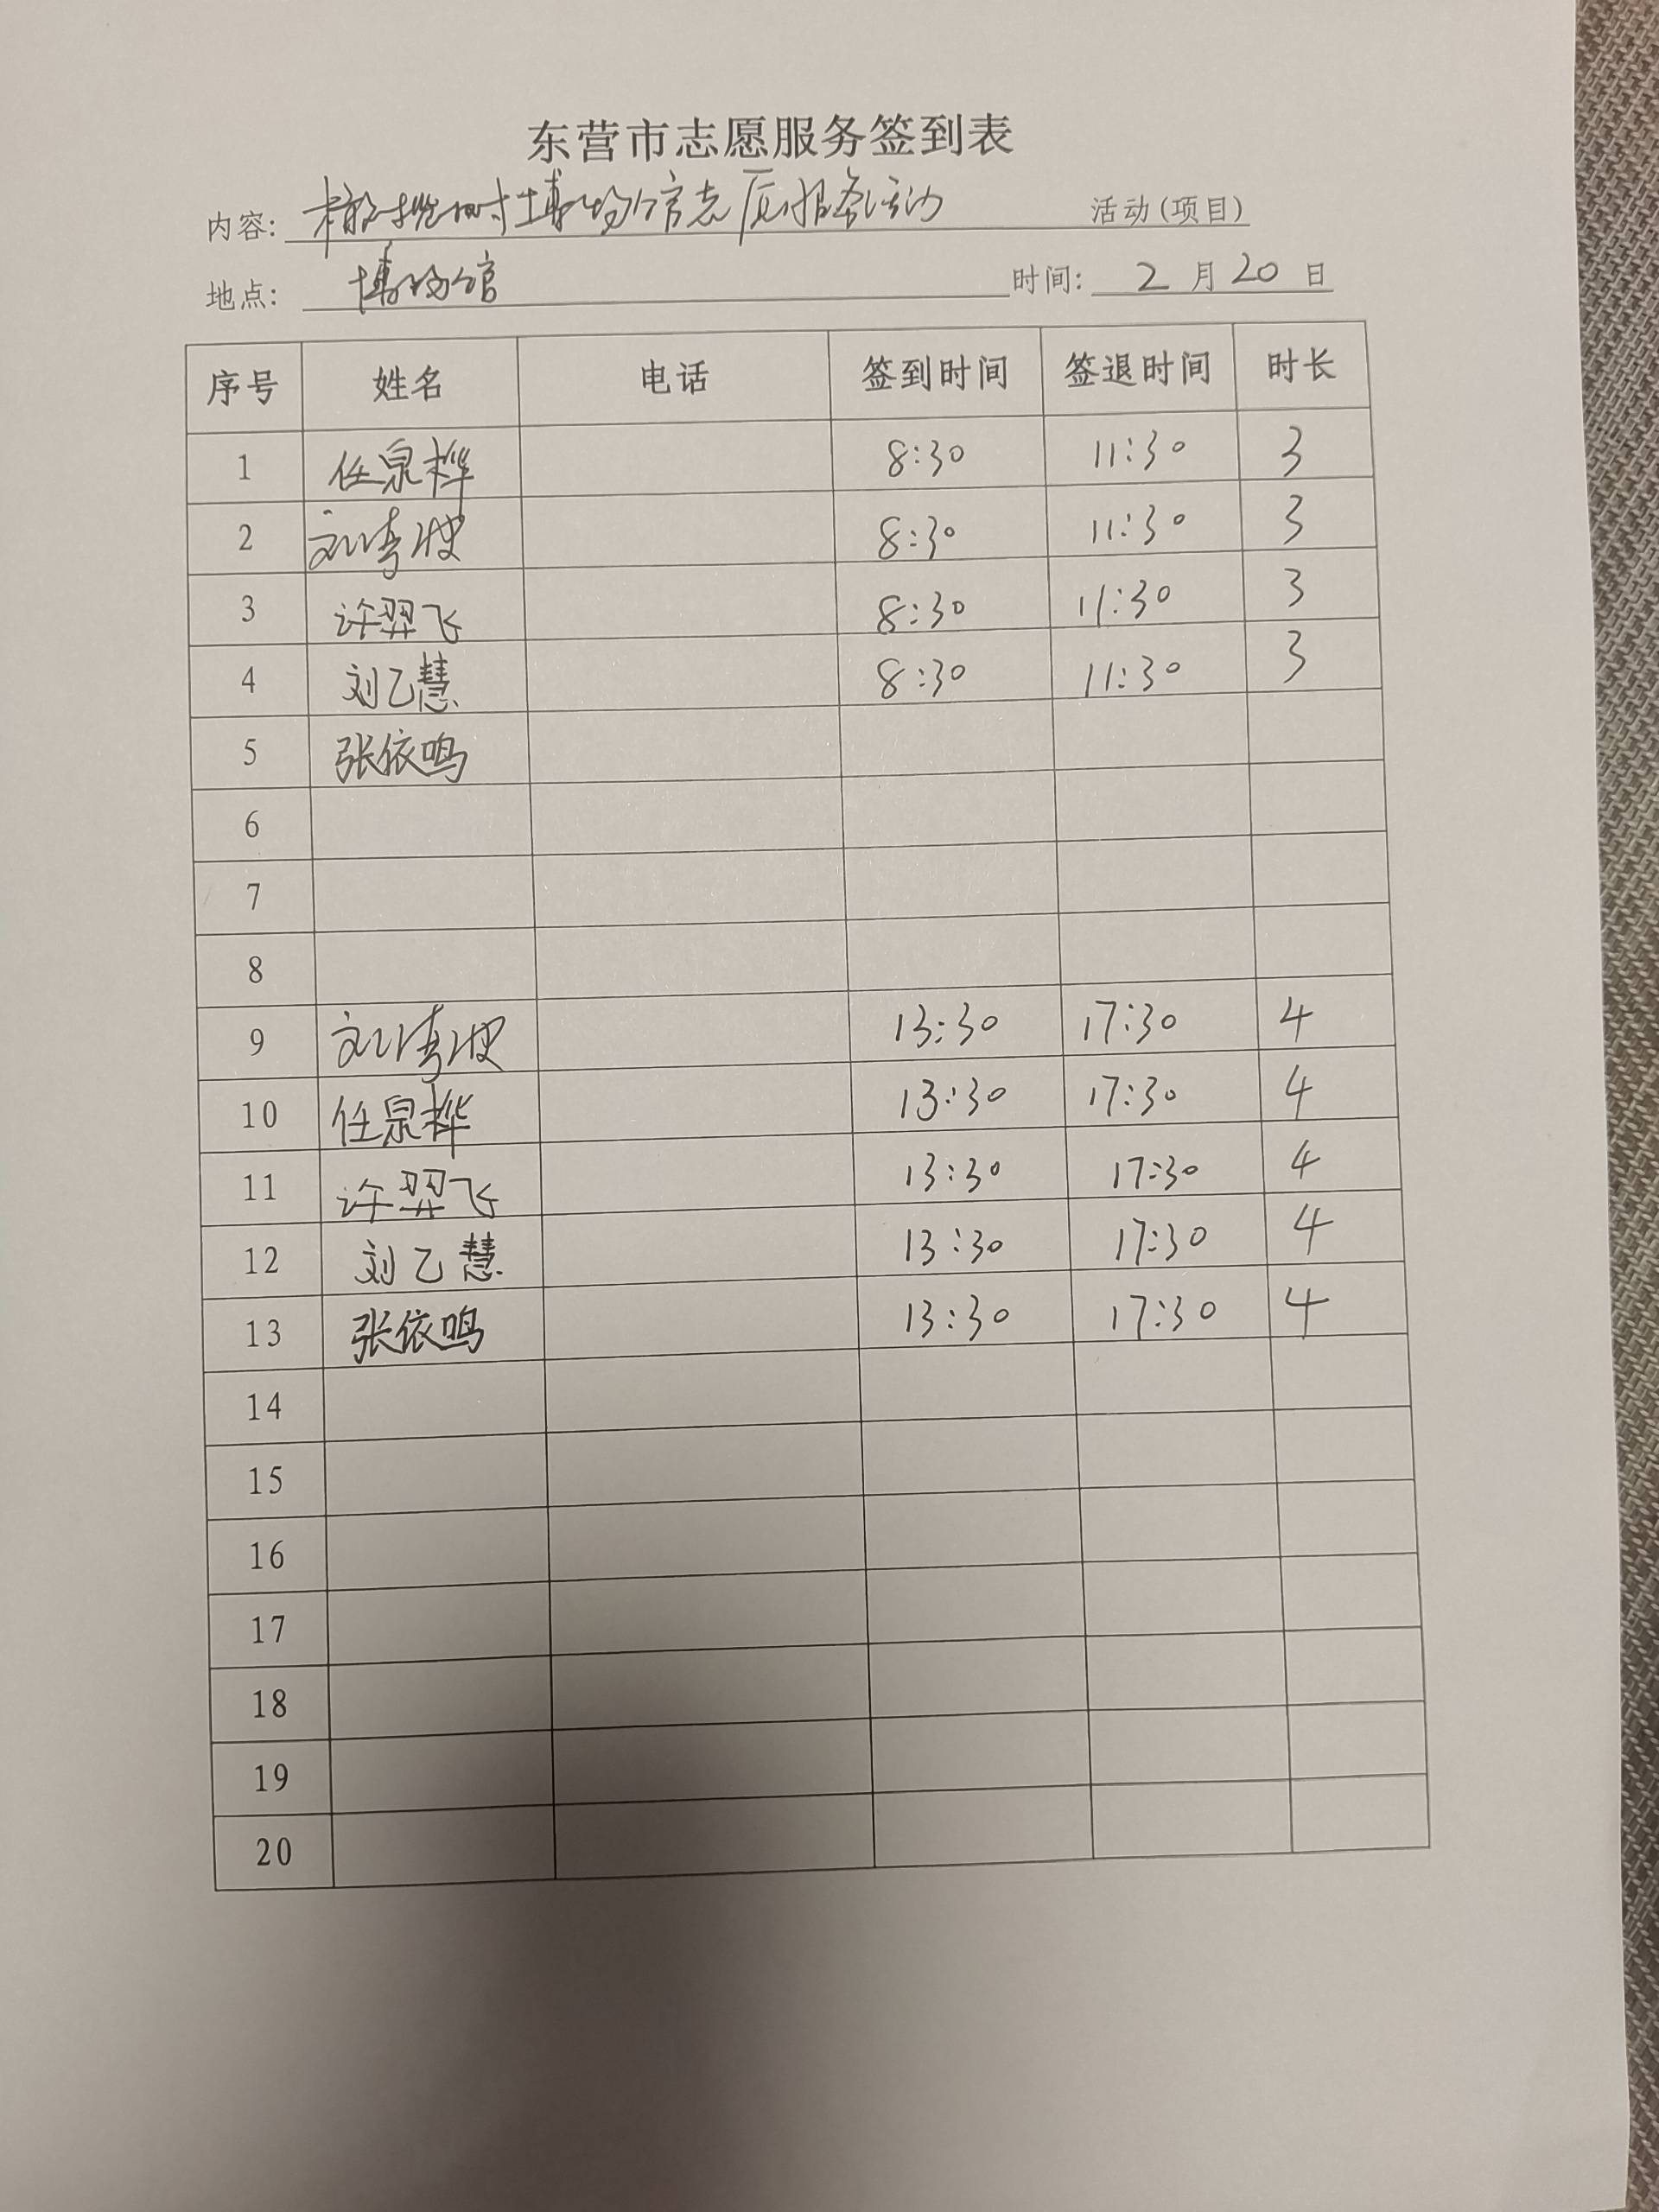 东营市志愿服务签到表
内容: 博物馆志愿服务活动 活动(项目)
地点: 博物馆 时间: 2月20日
序号 姓名 电话 签到时间 签退时间 时长
1 任泉桦 8:30 11:30 3
2 8:30 11:30 3
3 许羿飞 8:30 11:30 3
4 刘乙慧 8:30 11:30 3
5 张依鸣
6
7
8
9 13:30 17:30 4
10 任泉桦 13:30 17:30 4
11 许羿飞 13:30 17:30 4
12 刘乙慧 13:30 17:30 4
13 张依鸣 13:30 17:30 4
14
15
16
17
18
19
20